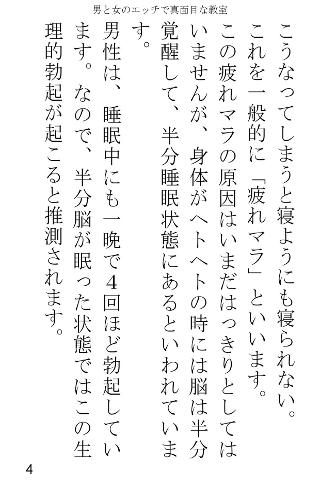 男と女のエッチで真面目な教室
こうなってしまうと寝ようにも寝られない。
これを一般的に「疲れマラ」といいます。
この疲れマラの原因はいまだはっきりとしては
いませんが、身体がヘトヘトの時には脳は半分
覚醒して、半分睡眠状態にあるといわれていま
す。
男性は、睡眠中にも一晩で４回ほど勃起してい
ます。なので、半分脳が眠った状態ではこの生
理的勃起が起こると推測されます。
4